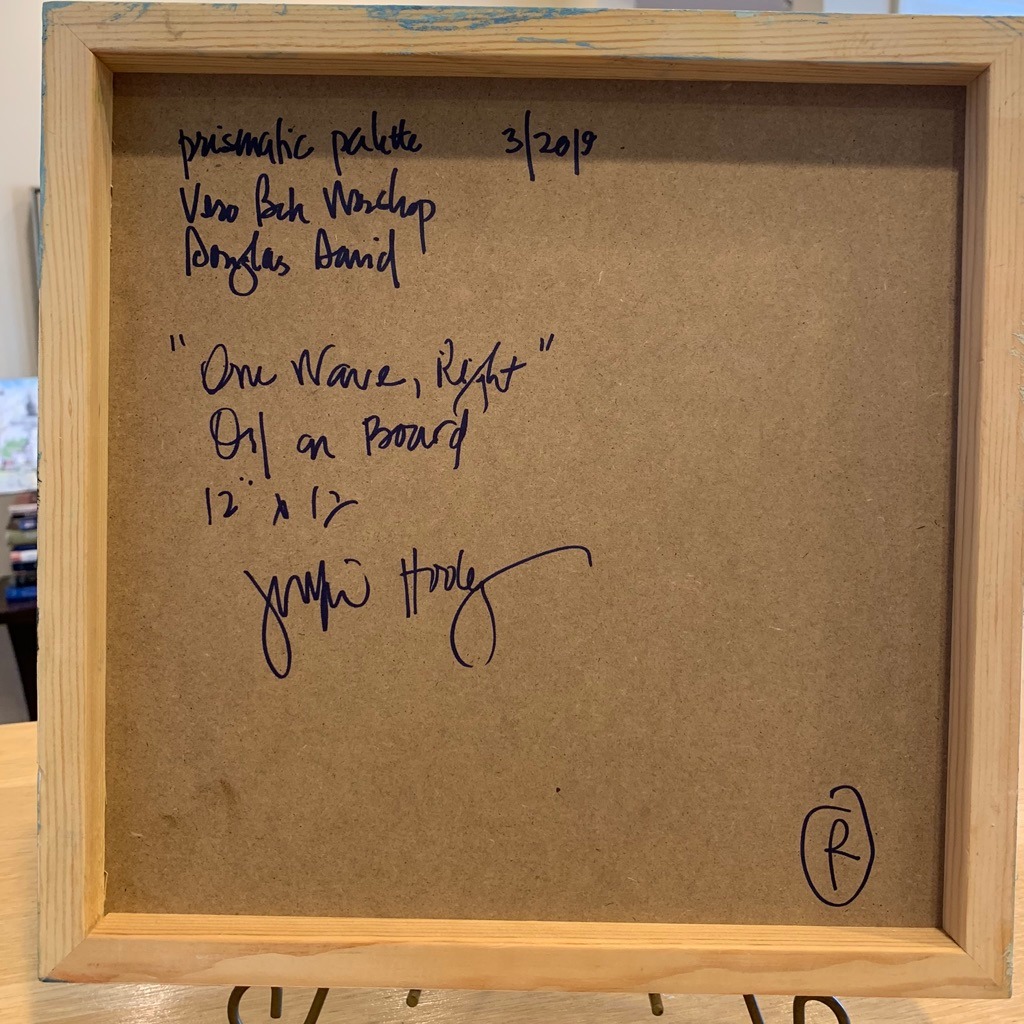 prismatic palette 3/2019
Vero Bch Workshop
Douglas David
"One Wave, Right"
Oil on Board
12" x 12
R